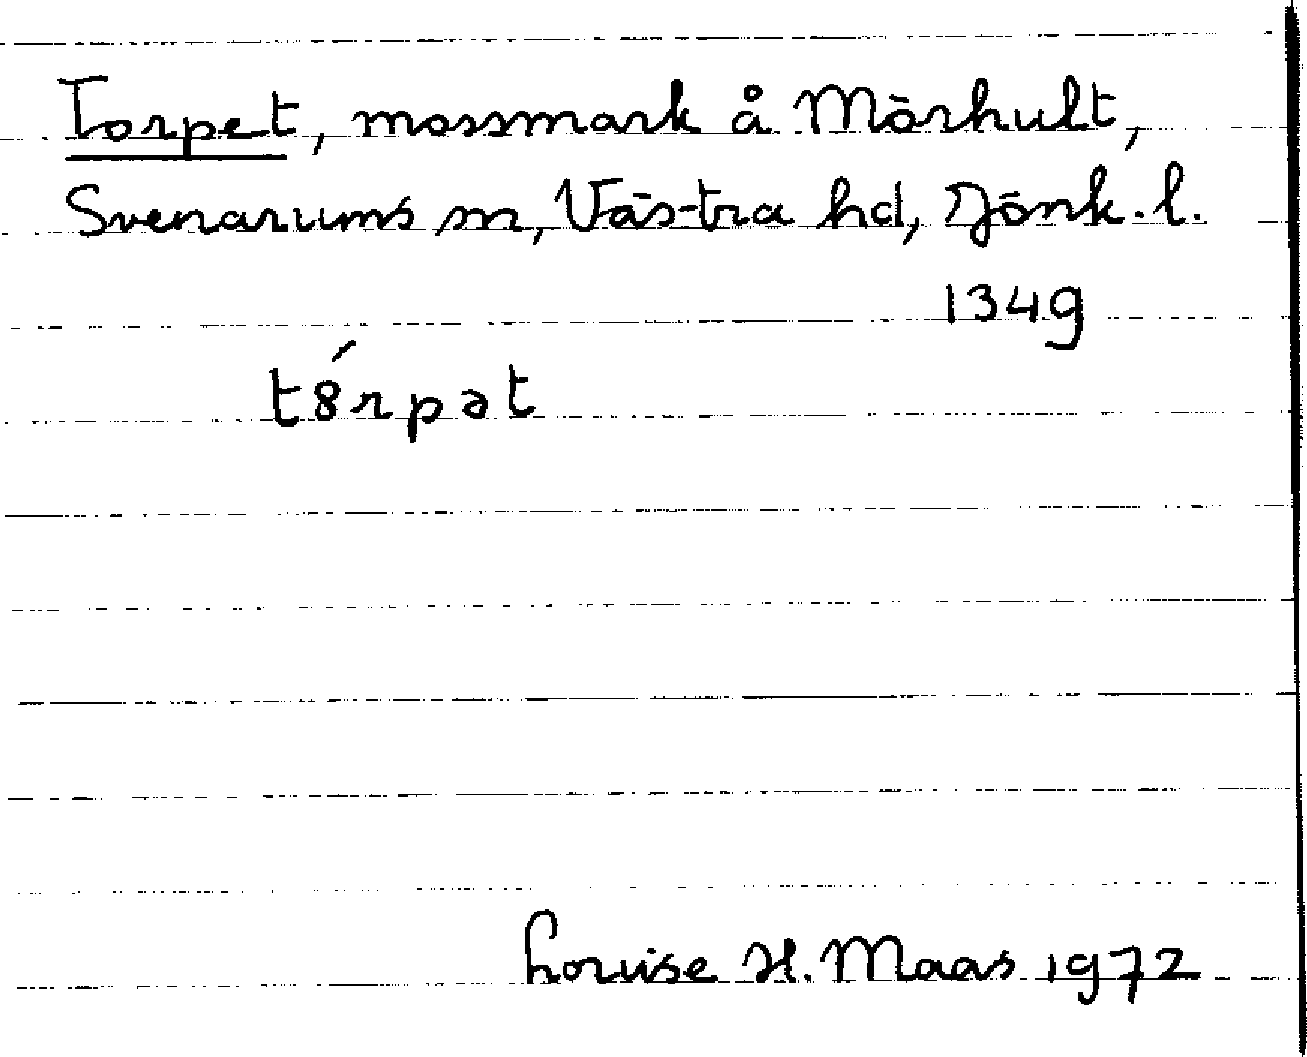 Torpet, mossmark å Mörhult,
Svenarums sn, Västra hd, Jönk. l.
1349
tȣ́rpət
Louise H. Maas 1972